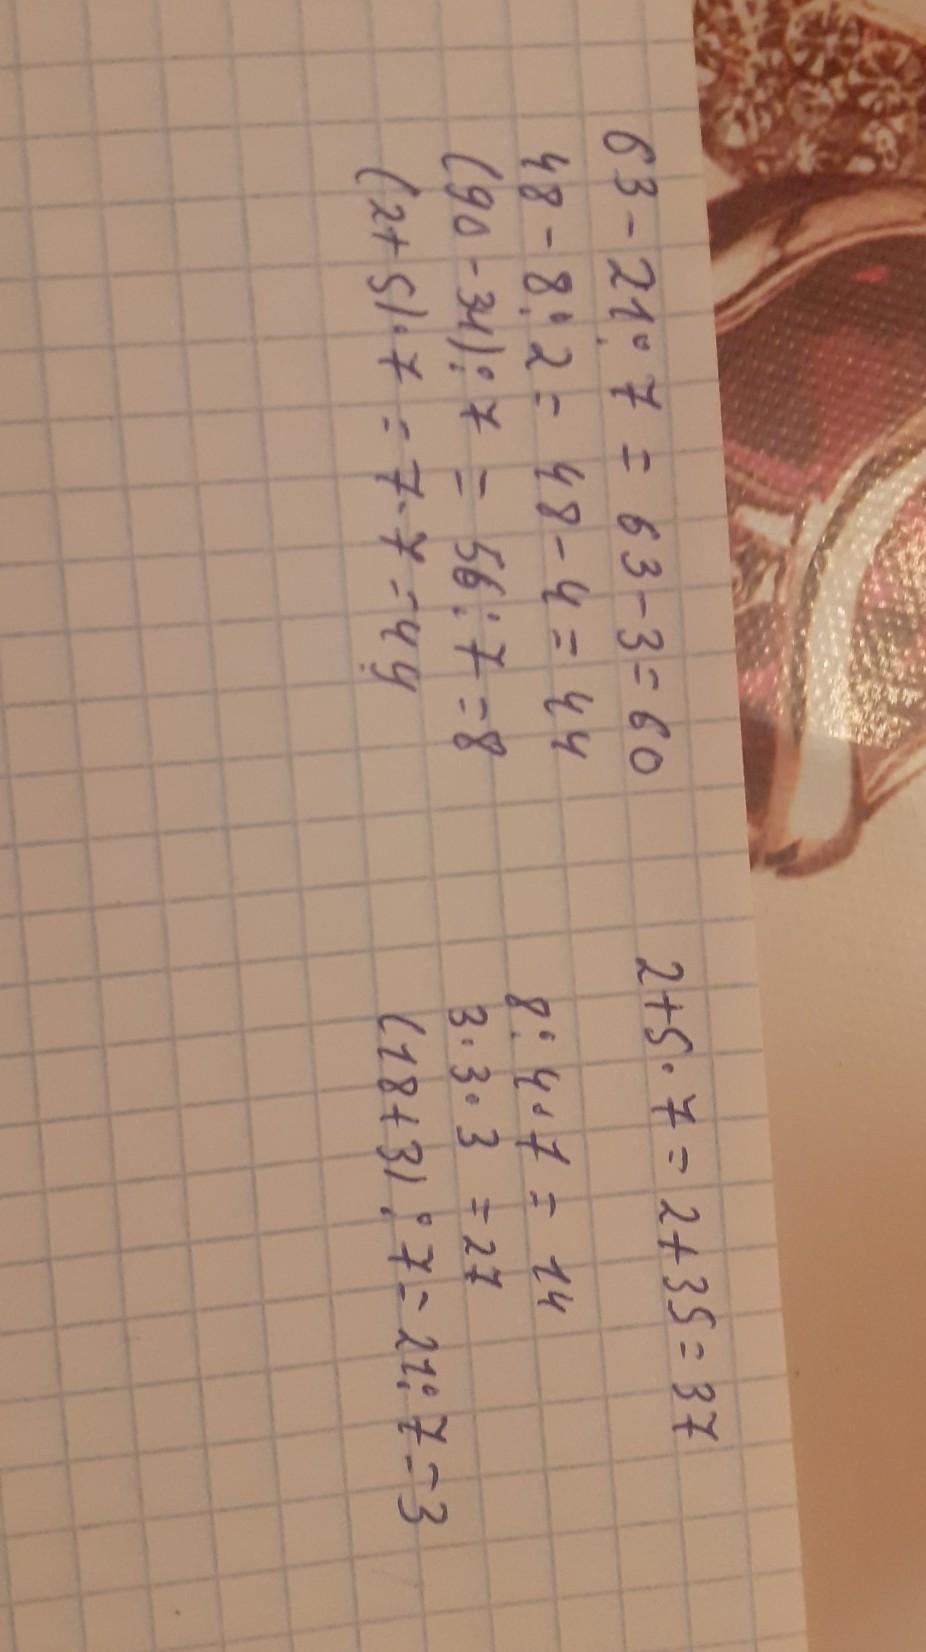 63 - 21 : 7 = 63 - 3 = 60
48 - 8 : 2 = 48 - 4 = 44
(90 - 34) : 7 = 56 : 7 = 8
(2 + 5) · 7 = 7 · 7 = 49
2 + 5 · 7 = 2 + 35 = 37
8 : 4 · 7 = 14
3 · 3 · 3 = 27
(18 + 3) : 7 = 21 : 7 = 3